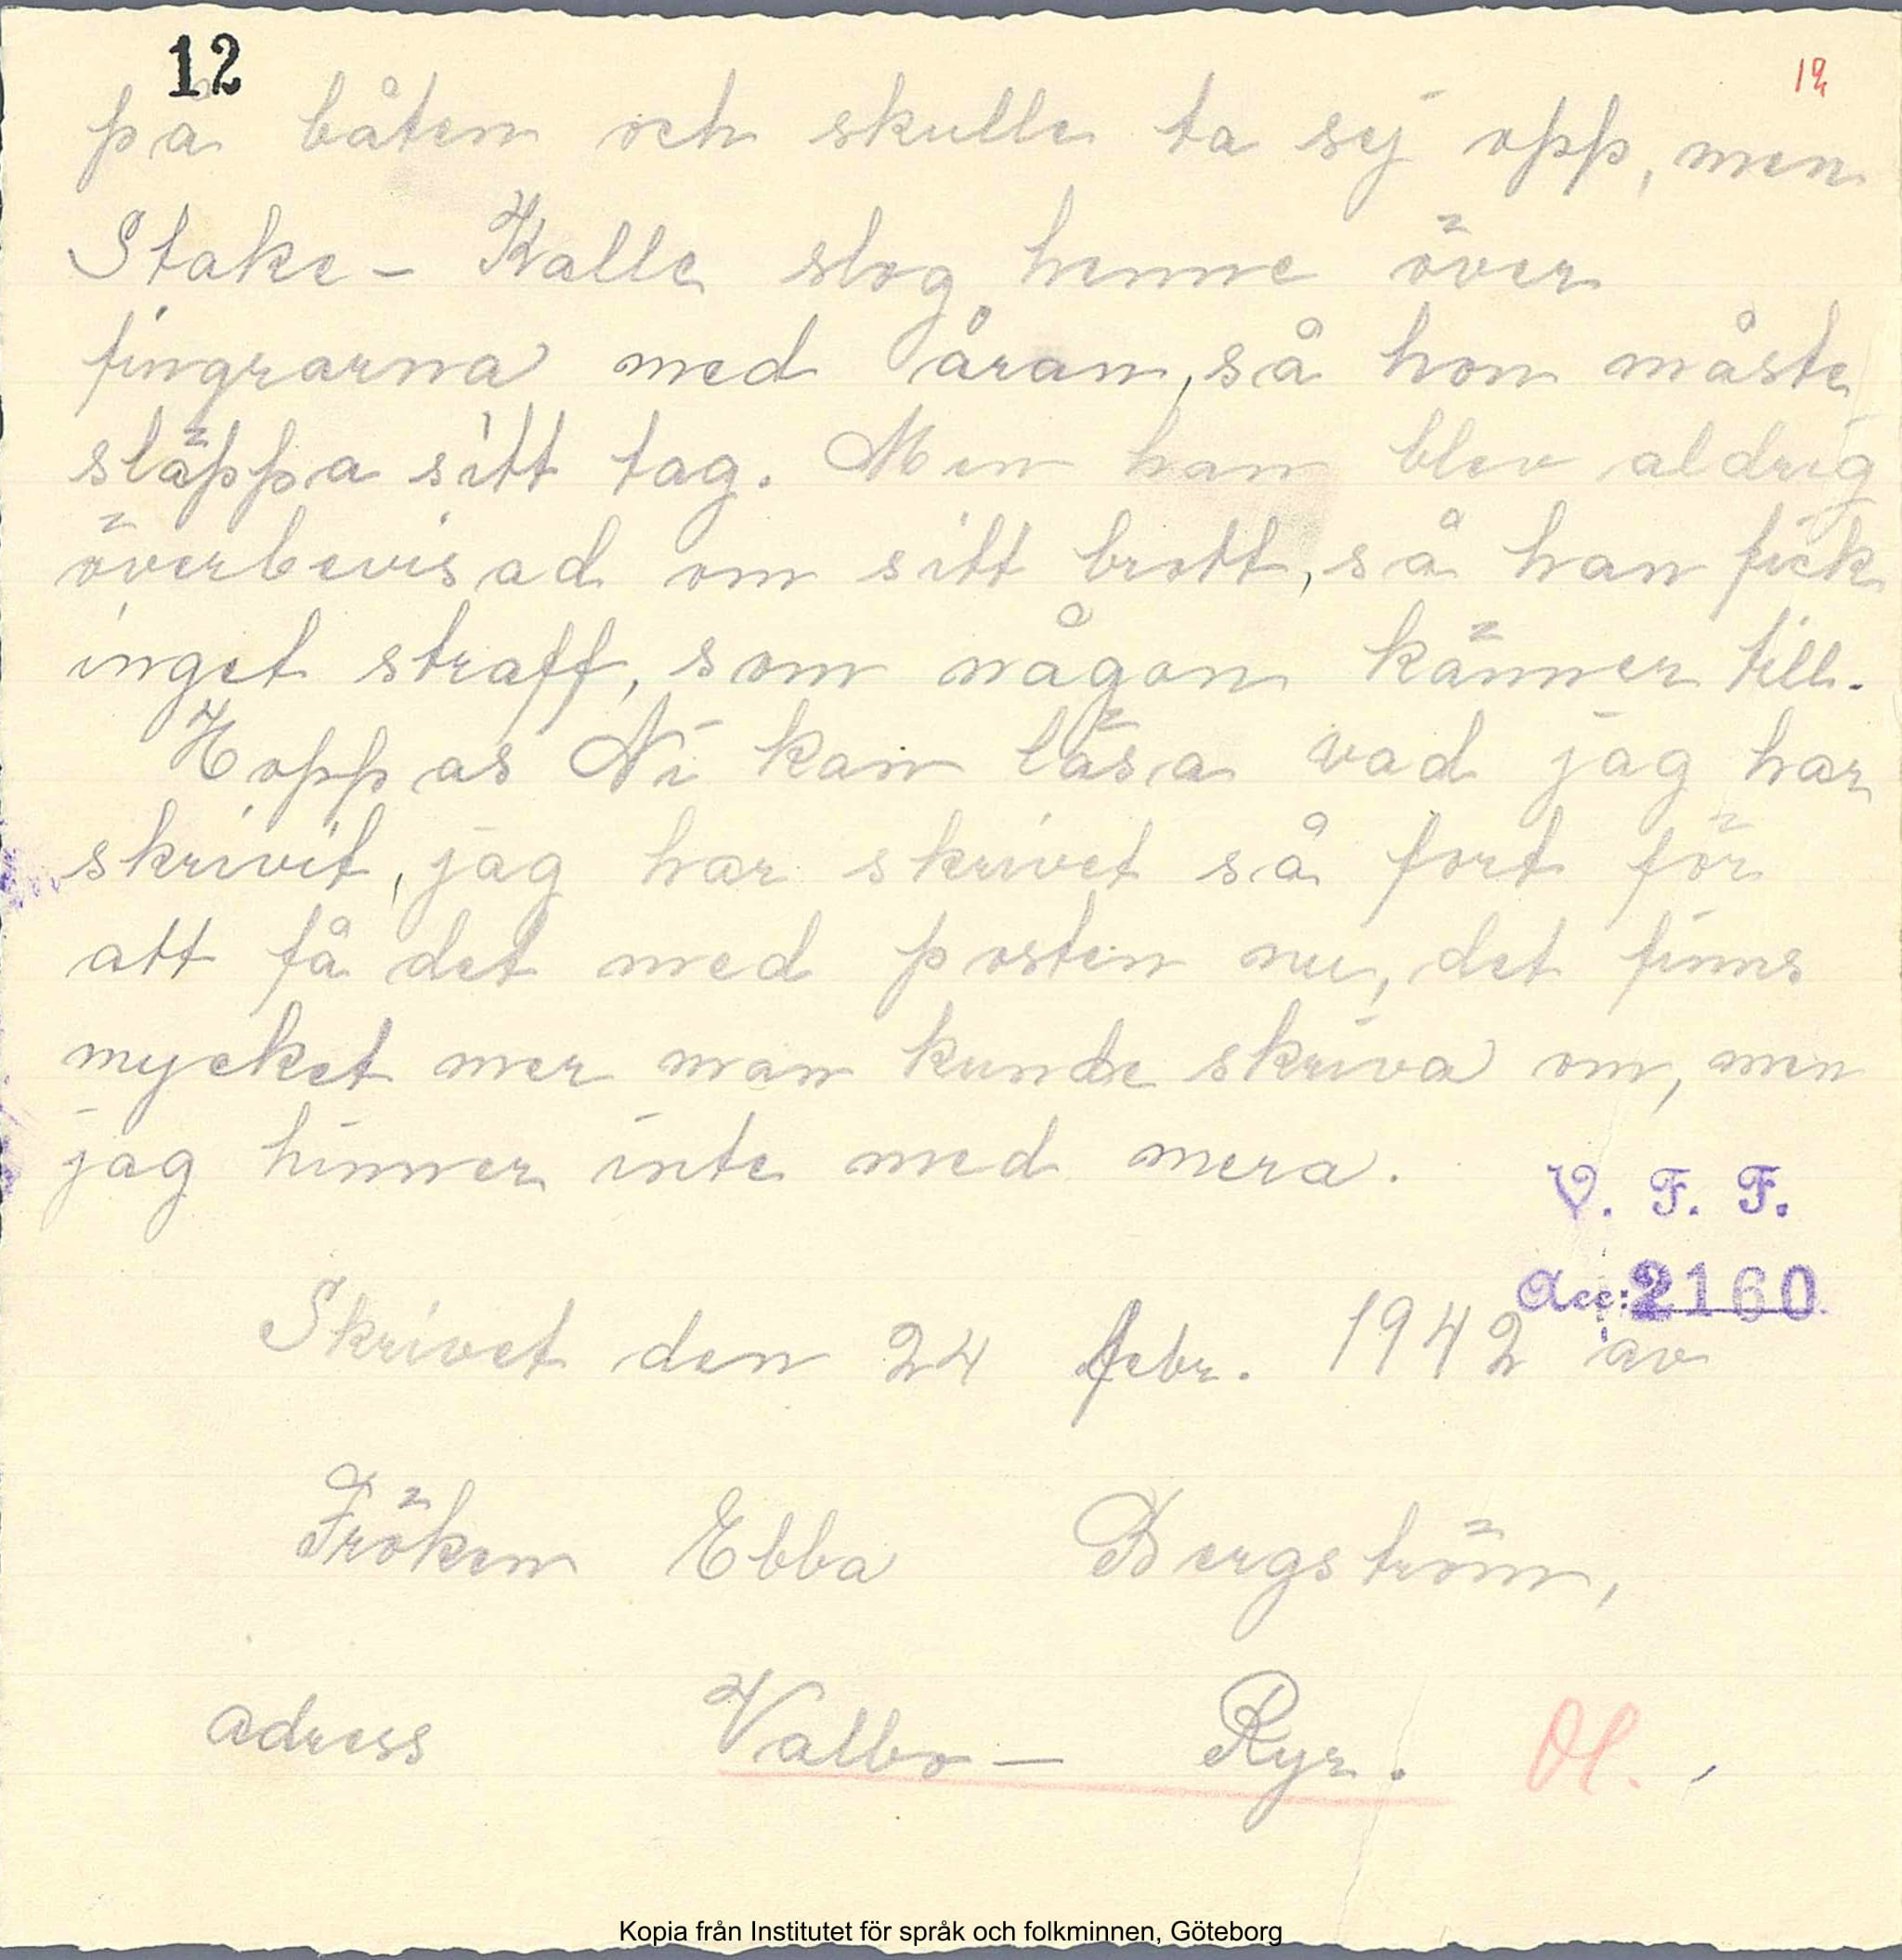 12
12
på båten och skulle ta sej opp, men
Stake- Kalle slog henne över
fingrarna med åran, så hon måste
släppa sitt tag. Men han blev aldrig
överbevisad om sitt brott, så han fick
inget straff, som någon känner till.
Hoppas Ni kan läsa vad jag har
skrivit, jag har skrivet så fort för
att få det med posten nu, det finns
mycket mer man kunde skriva om, men
jag hinner inte med mera.
V. F. F.
Acc: 2160
Skrivet den 24 febr. 1942 av
Fröken Ebba Bergström,
adress Valbo- Ryr. Dl.
Kopia från Institutet för språk och folkminnen, Göteborg